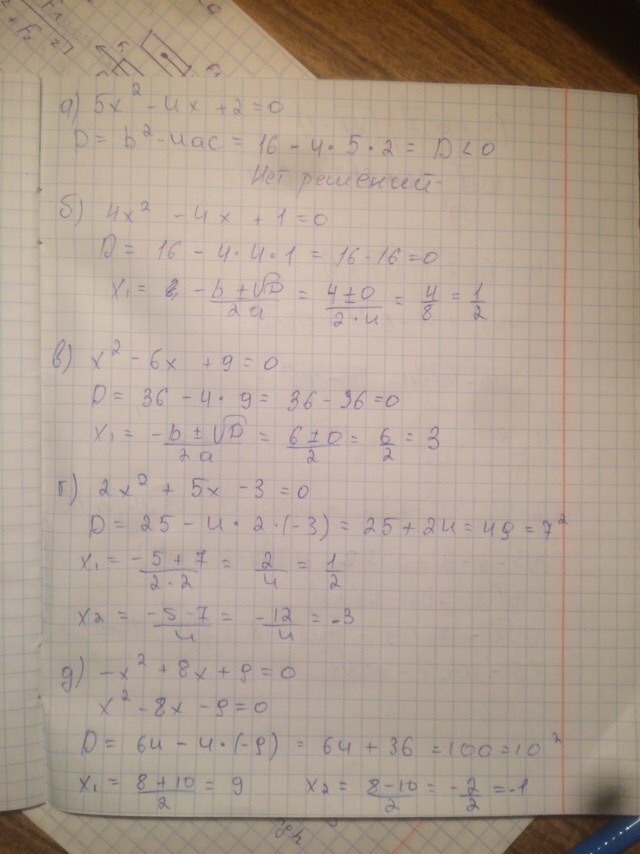 а) 5x² - 4x + 2 = 0
D = b² - 4ac = 16 - 4 · 5 · 2 = D < 0
Нет решений
б) 4x² - 4x + 1 = 0
D = 16 - 4 · 4 · 1 = 16 - 16 = 0
x₁ = -b ± √D / 2a = 4 ± 0 / 2 · 4 = 4/8 = 1/2
в) x² - 6x + 9 = 0
D = 36 - 4 · 9 = 36 - 36 = 0
x₁ = -b ± √D / 2a = 6 ± 0 / 2 = 6/2 = 3
г) 2x² + 5x - 3 = 0
D = 25 - 4 · 2 · (-3) = 25 + 24 = 49 = 7²
x₁ = -5 + 7 / 2 · 2 = 2/4 = 1/2
x2 = -5 - 7 / 4 = -12/4 = -3
д) -x² + 8x + 9 = 0
x² - 8x - 9 = 0
D = 64 - 4 · (-9) = 64 + 36 = 100 = 10²
x₁ = 8 + 10 / 2 = 9 x₂ = 8 - 10 / 2 = -2/2 = -1